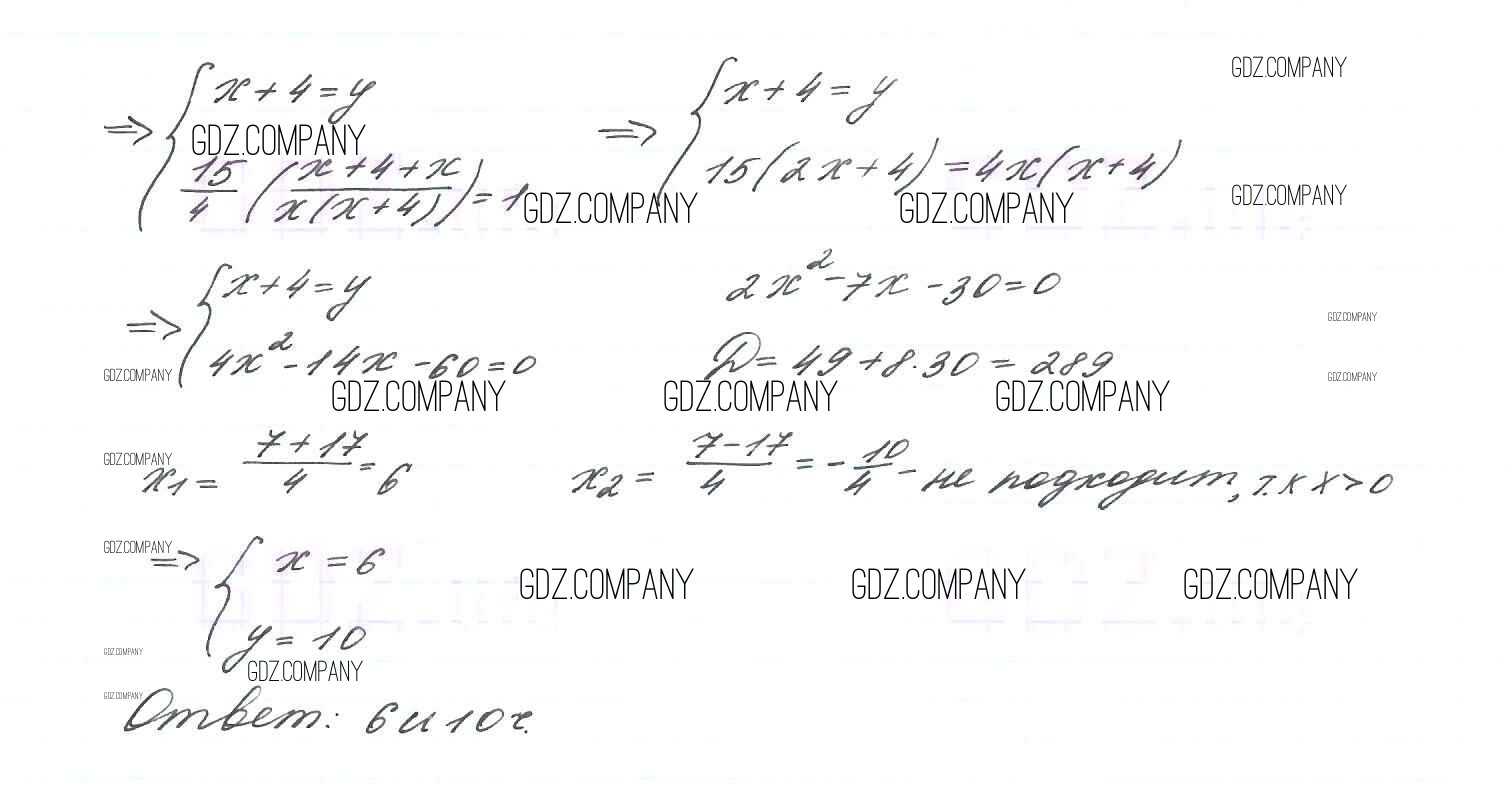 GDZ.COMPANY
⇒ { x + 4 = y ⇒ { x + 4 = y
GDZ.COMPANY
15/4 ( (x + 4 + x) / (x(x + 4)) ) = 1 15(2x + 4) = 4x(x + 4)
GDZ.COMPANY GDZ.COMPANY GDZ.COMPANY
⇒ { x + 4 = y 2x² - 7x - 30 = 0
GDZ.COMPANY
4x² - 14x - 60 = 0 D = 49 + 8·30 = 289
GDZ.COMPANY GDZ.COMPANY
GDZ.COMPANY GDZ.COMPANY GDZ.COMPANY
GDZ.COMPANY
x₁ = (7 + 17)/4 = 6 x₂ = (7 - 17)/4 = - 10/4 - не подходит, т.к x > 0
GDZ.COMPANY
⇒ { x = 6
GDZ.COMPANY GDZ.COMPANY GDZ.COMPANY
y = 10
GDZ.COMPANY
GDZ.COMPANY
GDZ.COMPANY
Ответ: 6 и 10 ч.